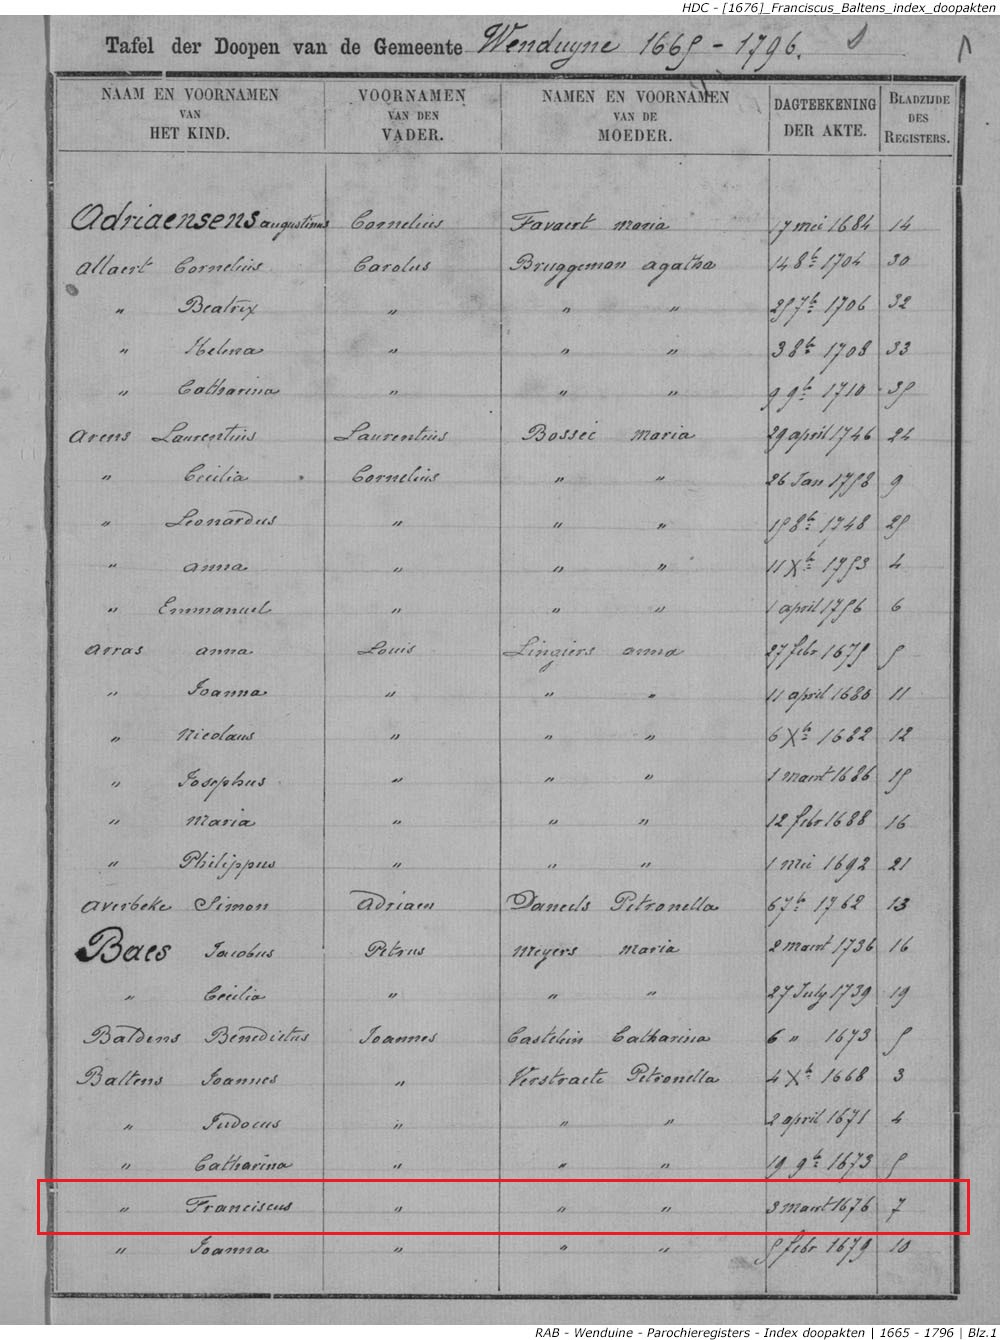 HDC - [1676]_Franciscus_Baltens_index_doopakten
Tafel der Doopen van de Gemeente Wenduyne 1665 - 1796.
NAAM EN VOORNAMEN VAN HET KIND. VOORNAMEN VAN DEN VADER. NAMEN EN VOORNAMEN VAN DE MOEDER. DAGTEEKENING DER AKTE. BLADZIJDE DES REGISTERS.
Adriaensens augustinus Cornelius Favaert maria 17 mei 1684 14
Allaert Cornelius Carolus Bruggeman agatha 14 8b 1704 30
" Beatrix " " " 25 7b 1706 32
" Helena " " " 3 8b 1708 33
" Catharina " " " 9 9b 1710 35
Arens Laurentius Laurentius Bosseè maria 29 april 1746 24
" Cecilia Cornelius " " 26 Jan 1758 9
" Leonardus " " " 15 8b 1748 25
" anna " " " 11 Xb 1753 4
" Emmanuel " " " 1 april 1756 6
arras anna Louis Lingiers anna 27 febr 1675 5
" Joanna " " " 11 april 1680 11
" Nicolaus " " " 6 Xb 1682 12
" Josephus " " " 1 maart 1686 15
" maria " " " 12 febr 1688 16
" Philippus " " " 1 mei 1692 21
averbeke Simon adriaen Daneels Petronella 6 7b 1762 13
Baes Jacobus Petrus meyers maria 2 maart 1736 16
" Cecilia " " " 27 July 1739 19
Baldens Benedictus Joannes Castelein Catharina 6 " 1673 5
Baltens Joannes " Verstraete Petronella 4 Xb 1668 3
" Judocus " " " 2 april 1671 4
" Catharina " " " 19 9b 1673 5
" Franciscus " " " 3 maart 1676 7
" Joanna " " " 5 febr 1679 10
RAB - Wenduine - Parochieregisters - Index doopakten | 1665 - 1796 | Blz.1